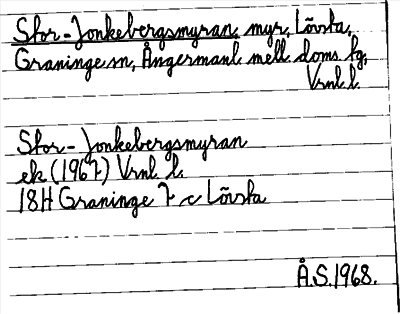 Stor-Jonkebergsmyran, myr, Lövsta,
Graninge sn, Ångermanl. mell. doms. fg,
Vrnl. l.
Stor-Jonkebergsmyran
ek (1967) Vrnl. l.
18H Graninge 7 c Lövsta
Å.S. 1968.